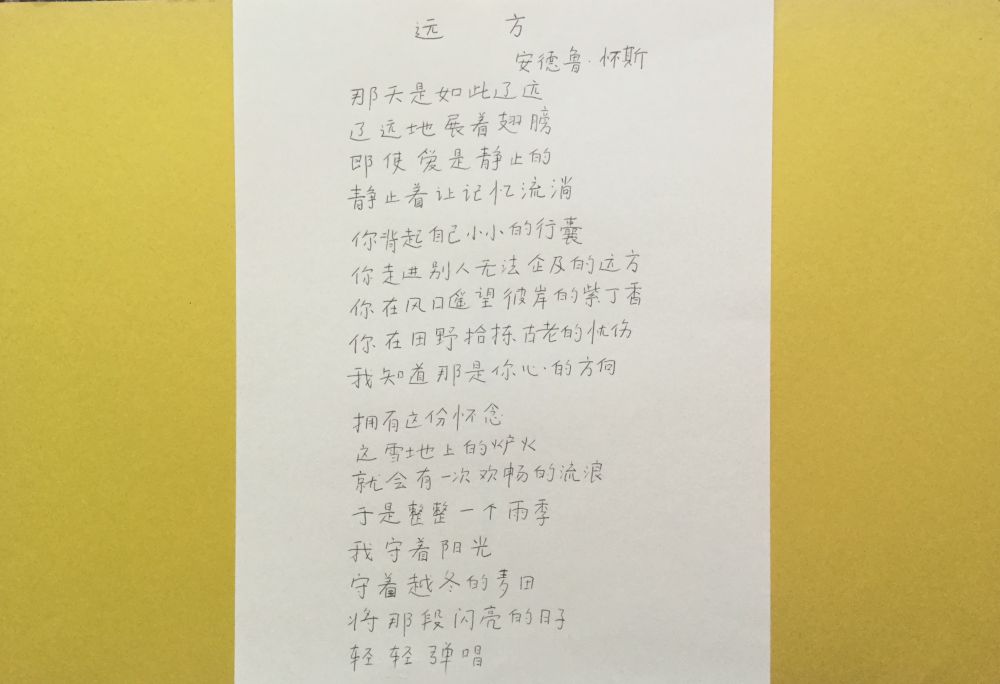 远方
安德鲁·怀斯
那天是如此辽远
辽远地展着翅膀
即使爱是静止的
静止着让记忆流淌
你背起自己小小的行囊
你走进别人无法企及的远方
你在风口遥望彼岸的紫丁香
你在田野拾拣古老的忧伤
我知道那是你心的方向
拥有这份怀念
这雪地上的炉火
就会有一次欢畅的流浪
于是整整一个雨季
我守着阳光
守着越冬的麦田
将那段闪亮的日子
轻轻弹唱